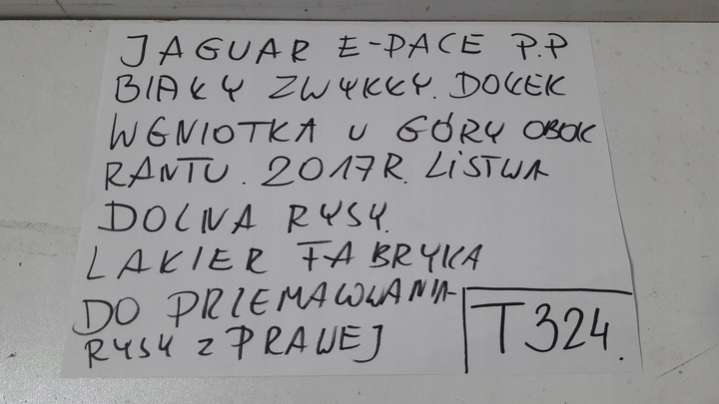 JAGUAR E-PACE P.P
BIAŁY ZWYKŁY. DOŁEK
WGNIOTKA U GÓRY OBOK
RANTU. 2017R. LISTWA
DOLNA RYSY.
LAKIER FABRYKA
DO PRZEMALOWANIA
RYSY Z PRAWEJ
T324.